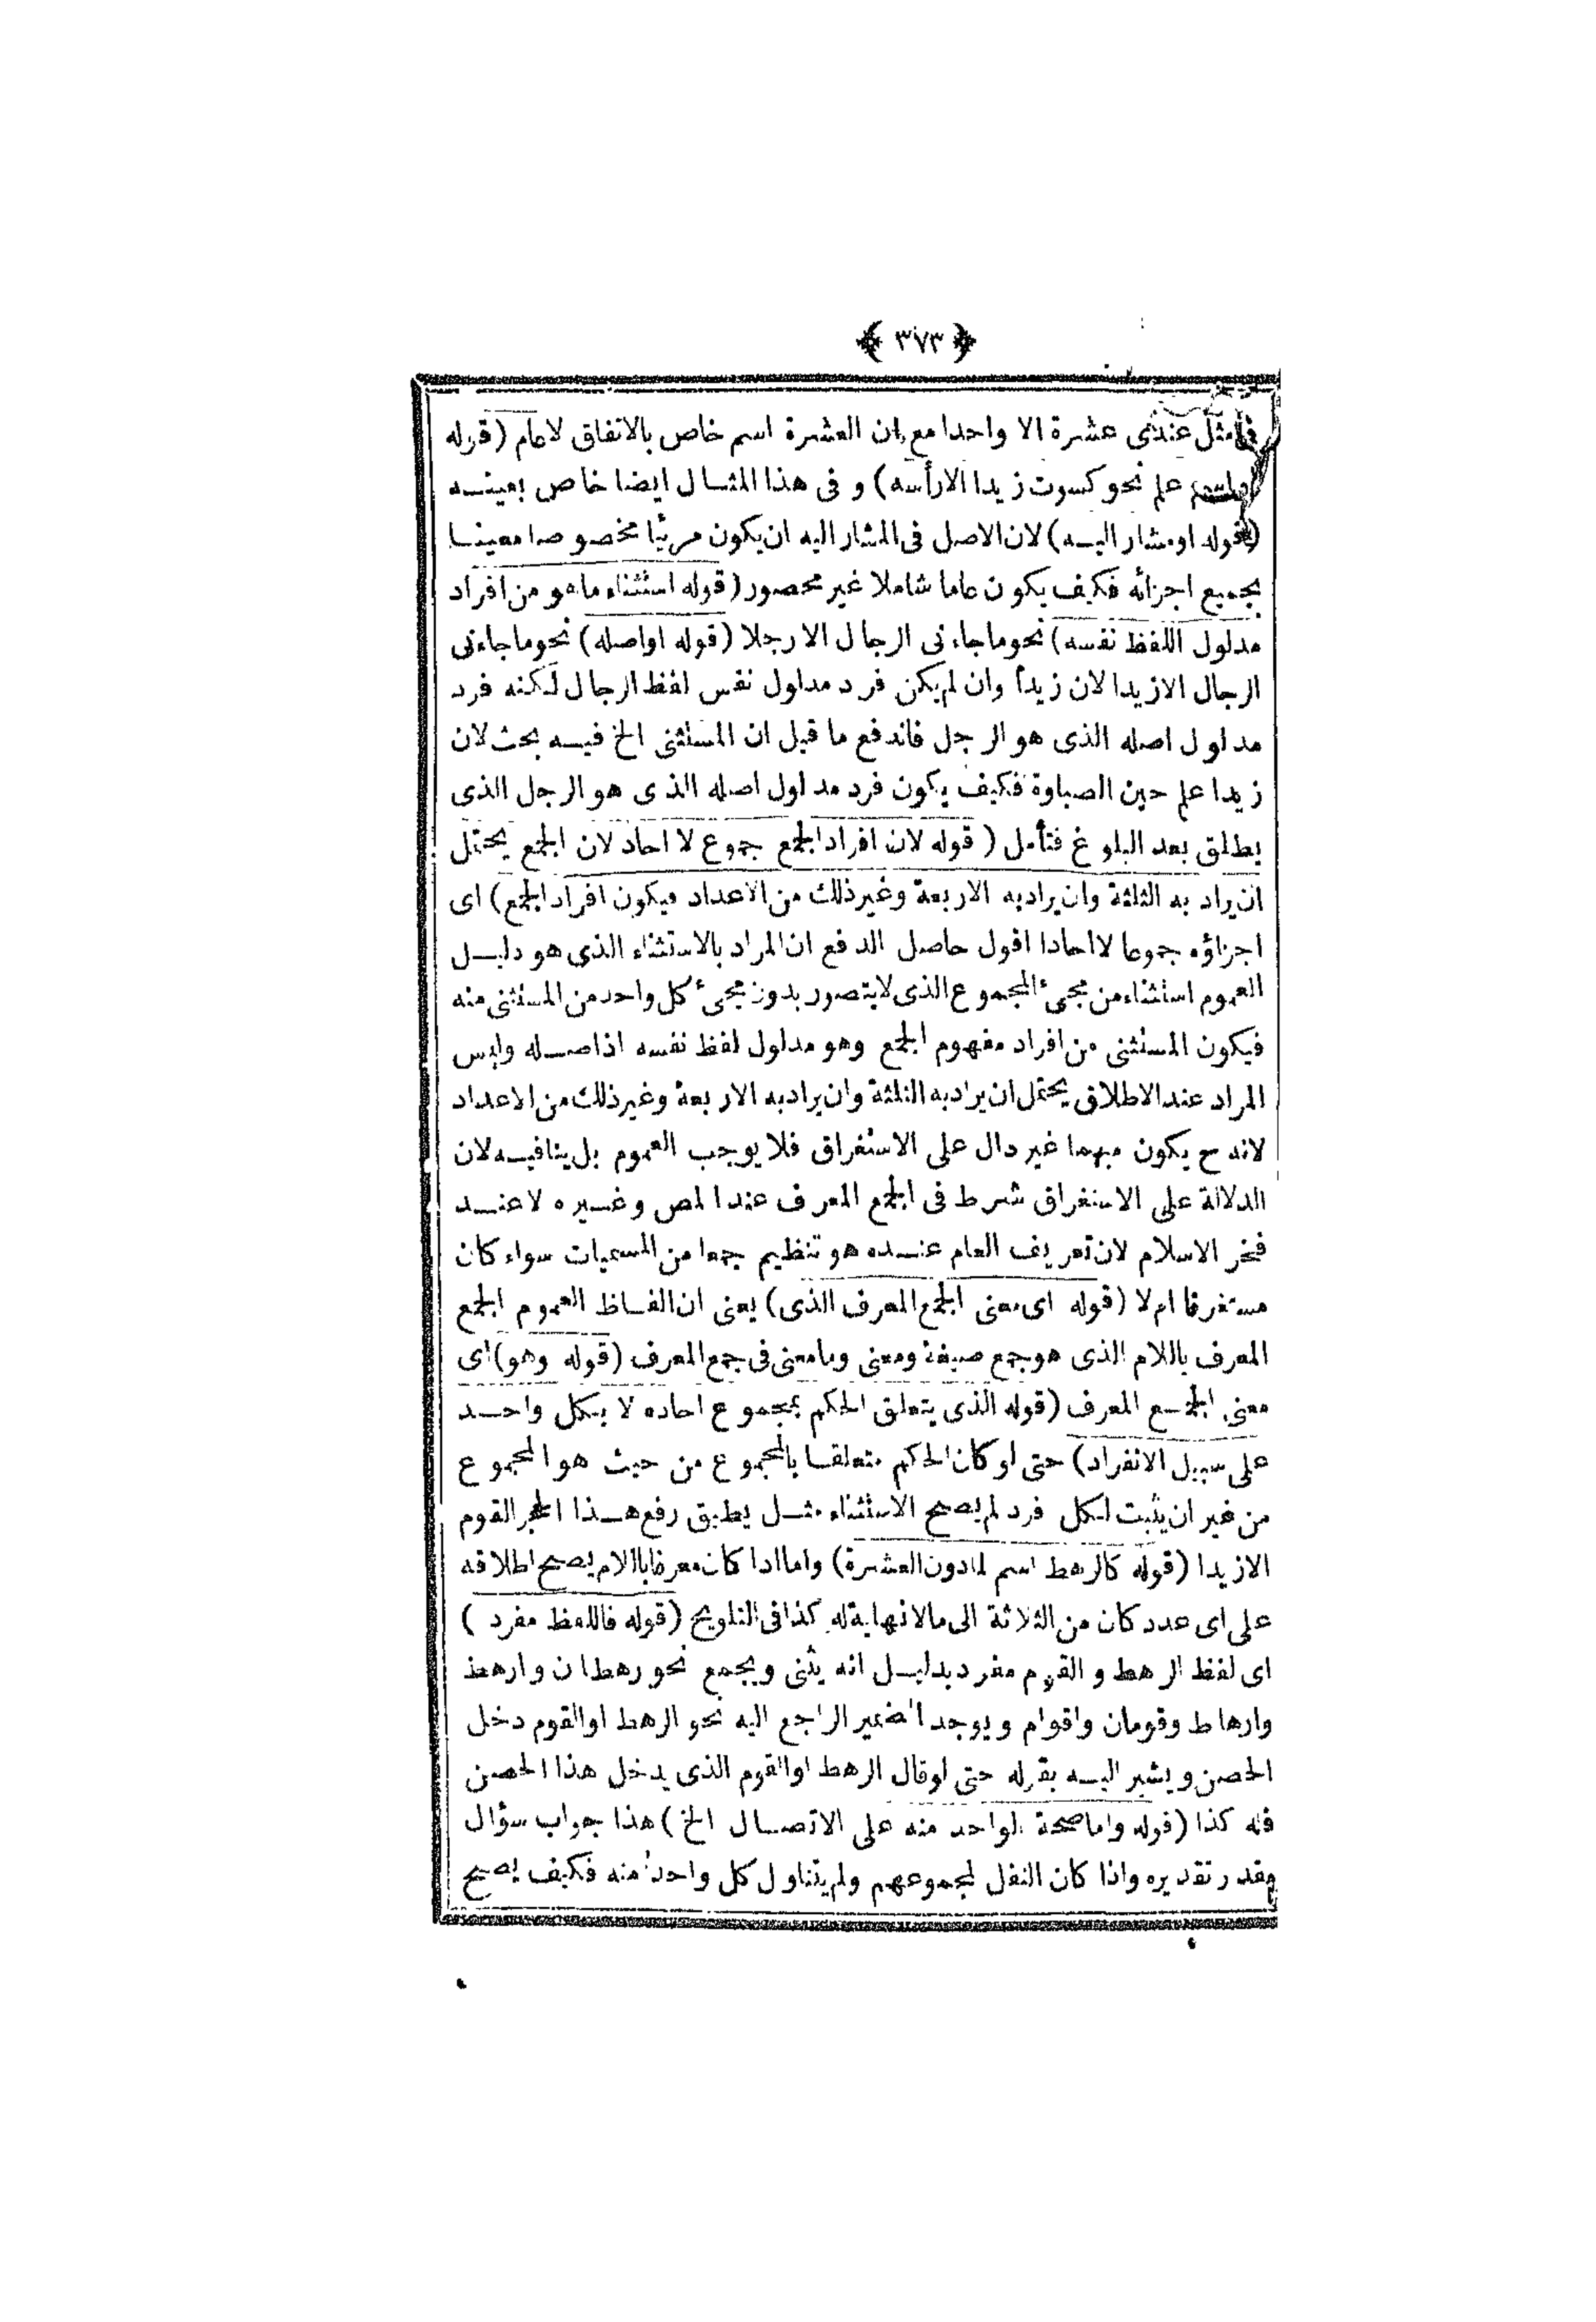 ﴿ ٣٧٣ ﴾
فى مثل عندى عشرة الا واحدا مع ان العشرة اسم خاص بالاتفاق لاعام (قوله
واسم علم نحو كسوت زيدا الارأسه) وفى هذا المثال ايضا خاص بعينه
(قوله او مشار اليه) لان الاصل فى المشار اليه ان يكون مرئيا مخصوصا معينا
بجميع اجزائه فكيف يكون عاما شاملا غير محصور (قوله استثناء ماهو من افراد
مدلول اللفظ نفسه) نحو ماجاءنى الرجال الا رجلا (قوله اواصله) نحو ماجاءنى
الرجال الازيدا لان زيدا وان لم يكن فرد مدلول نفس لفظ الرجال لكنه فرد
مدلول اصله الذى هو الرجل فاندفع ما قيل ان المستثنى الخ فيه بحث لان
زيدا علم حين الصباوة فكيف يكون فرد مدلول اصله الذى هو الرجل الذى
يطلق بعد البلوغ فتأمل (قوله لان افراد الجمع جموع لا احاد لان الجمع يحتمل
ان يراد به الثلثة وان يراد به الاربعة وغير ذلك من الاعداد فيكون افراد الجمع) اى
اجزاؤه جموعا لا احادا اقول حاصل الدفع ان المراد بالاستثناء الذى هو دليل
العموم استثناء من مجىء المجموع الذى لايتصور بدون مجىء كل واحد من المستثنى منه
فيكون المستثنى من افراد مفهوم الجمع وهو مدلول لفظ نفسه اذاصله وليس
المراد عند الاطلاق يحتمل ان يراد به الثلثة وان يراد به الاربعة وغير ذلك من الاعداد
لانه ح يكون مبهما غير دال على الاستغراق فلا يوجب العموم بل ينافيه لان
الدلالة على الاستغراق شرط فى الجمع المعرف عند المص وغيره لا عند
فخر الاسلام لان تعريف العام عنده هو تنظيم جمعا من المسميات سواء كان
مستغرقا ام لا (قوله اى معنى الجمع المعرف الذى) يعنى ان الفاظ العموم الجمع
المعرف باللام الذى هو جمع صيغة ومعنى وما معنى فى جمع المعرف (قوله وهو) اى
معنى الجمع المعرف (قوله الذى يتعلق الحكم بمجموع احاده لا بكل واحد
على سبيل الانفراد) حتى لو كان الحكم متعلقا بالمجموع من حيث هو المجموع
من غير ان يثبت لكل فرد لم يصح الاستثناء مثل يطيق رفع هذا الحجر القوم
الازيدا (قوله كالرهط اسم لمادون العشرة) واما اذا كان معرفا باللام يصح اطلاقه
على اى عدد كان من الثلاثة الى مالانهاية له كذا فى التلويح (قوله فاللفظ مفرد )
اى لفظ الرهط و القوم مفرد بدليل انه يثنى ويجمع نحو رهطان وارهط
وارهاط وقومان واقوام ويوجد الضمير الراجع اليه نحو الرهط اوالقوم دخل
الحصن ويشير اليه بقوله حتى لوقال الرهط اوالقوم الذى يدخل هذا الحصن
فله كذا (قوله واما صحة الواحد منه على الاتصال الخ) هذا جواب سؤال
مقدر تقديره واذا كان النفل لمجموعهم ولم يتناول كل واحد منه فكيف يصح